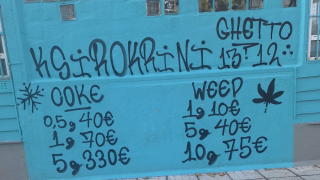 GHETTO
KSIROKRINI 13T12
COKE
0,5g 40€
1g 70€
5g 330€
WEED
1g 10€
5g 40€
10g 75€